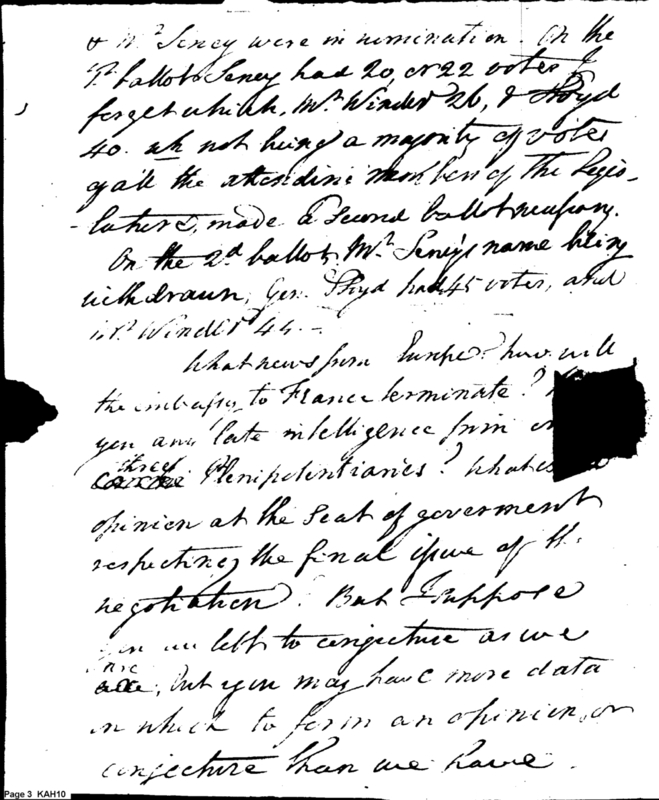 & Mr. Seney were in nomination. On the
1st ballot Seney had 20, or 22 votes, I
forget which, Mr. Winder 26, & Lloyd
40. wh not being a majority of votes
of all the attending members of the Legis-
-lature, made a second ballot necessary.
On the 2d. ballot, Mr. Seney's name being
withdrawn, Gen. Lloyd had 45 votes, and
Mr. Winder 44.—
What news from Europe? how will
the embassy to France terminate?
you any late intelligence from
three
Plenipotentiaries? What is
opinion at the seat of goverment
respecting the final issue of th.
negotiation? But I suppose
you are left to conjecture as we
are, but you may have more data
on which to form an opinion, or
conjecture than we have.
Page 3 KAH10